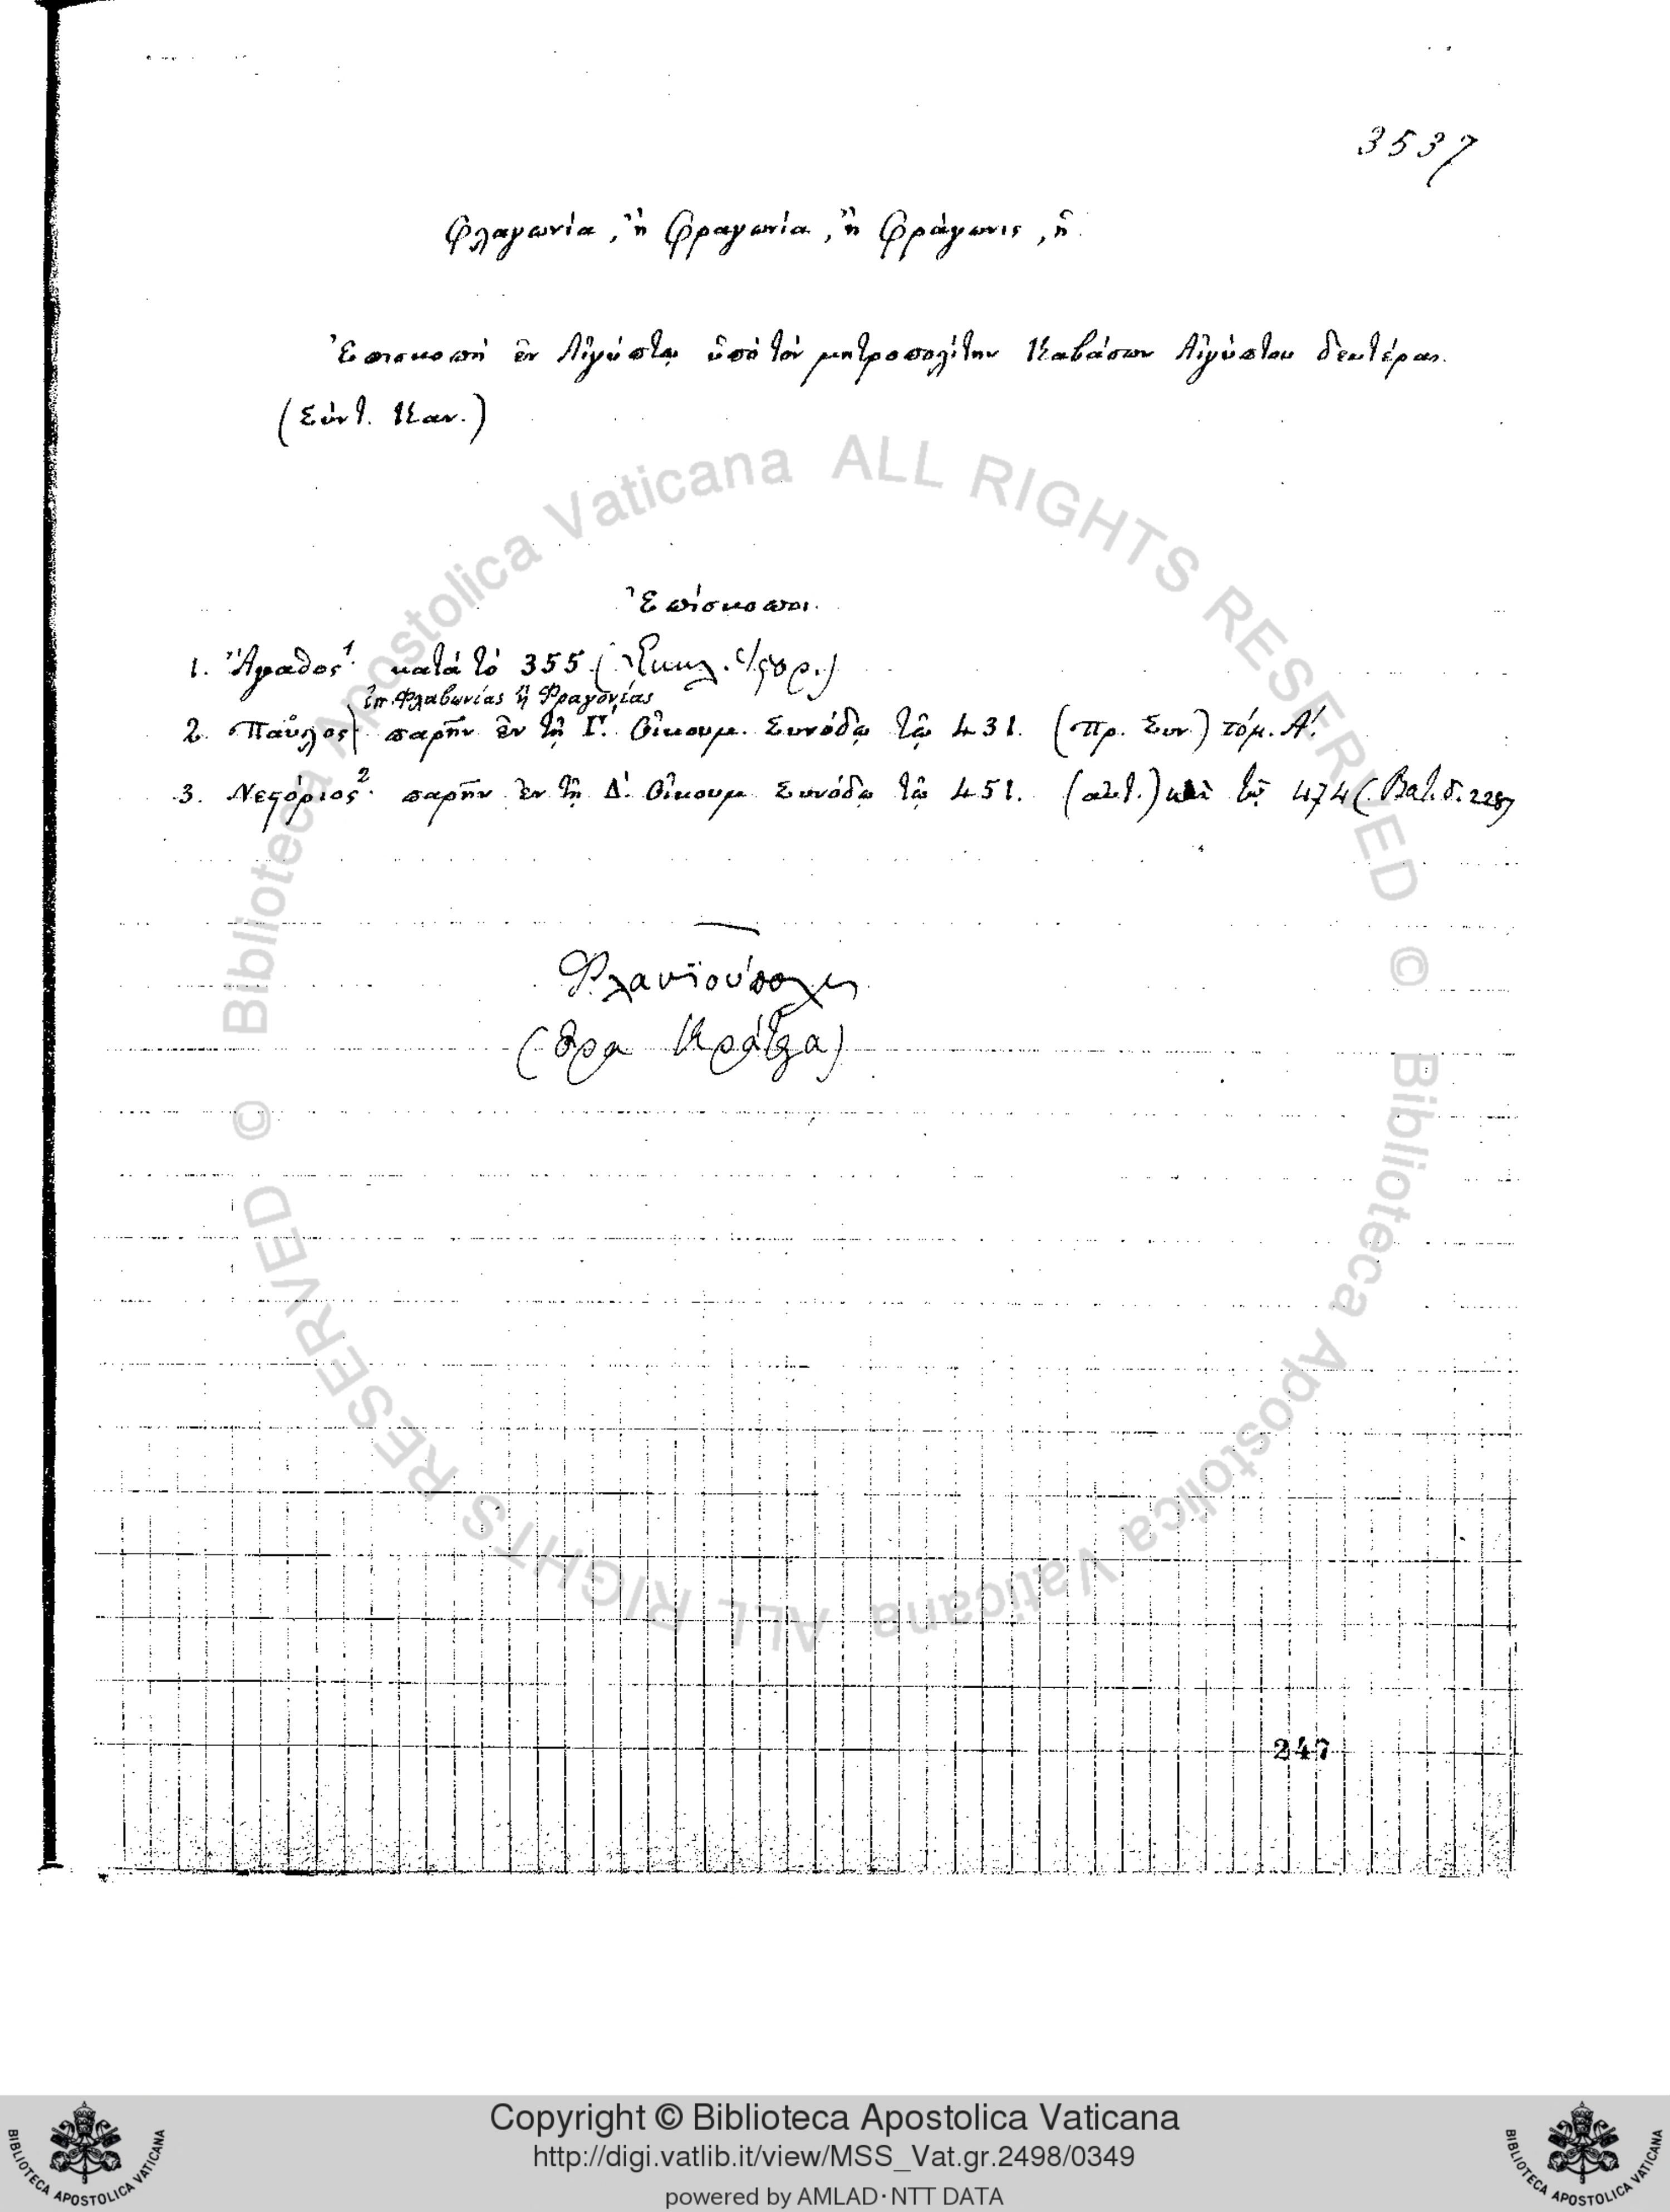 3537
Φλαγωνία, ἢ Φραγωνία, ἢ Φράγωνις, ἡ.
Ἐπισκοπὴ ἐν Αἰγύπτῳ ὑπὸ τὸν μητροπολίτην Καβάσων Αἰγύπτου δευτέρας.
(Σύντ. Καν.)
Ἐπίσκοποι.
1. Ἄγαθος 1. κατὰ τὸ 355 (
ἐπ. Φλαβωνίας ἢ Φραγονίας
2. Παῦλος παρῆν ἐν τῇ Γ΄. Οἰκουμ. Συνόδῳ τῷ 431. (Πρ. Συν.) τόμ. Α΄.
3. Νεστόριος 2. παρῆν ἐν τῇ Δ΄. Οἰκουμ Συνόδῳ τῷ 451. (αὐτ.) καὶ τῷ 474 (
Φλαυϊούπολις
(ὅρα Κράτζα)
247
© Biblioteca Apostolica Vaticana ALL RIGHTS RESERVED
© Biblioteca Apostolica Vaticana ALL RIGHTS RESERVED
Copyright © Biblioteca Apostolica Vaticana
http://digi.vatlib.it/view/MSS_Vat.gr.2498/0349
powered by AMLAD·NTT DATA
BIBLIOTECA APOSTOLICA VATICANA
BIBLIOTECA APOSTOLICA VATICANA